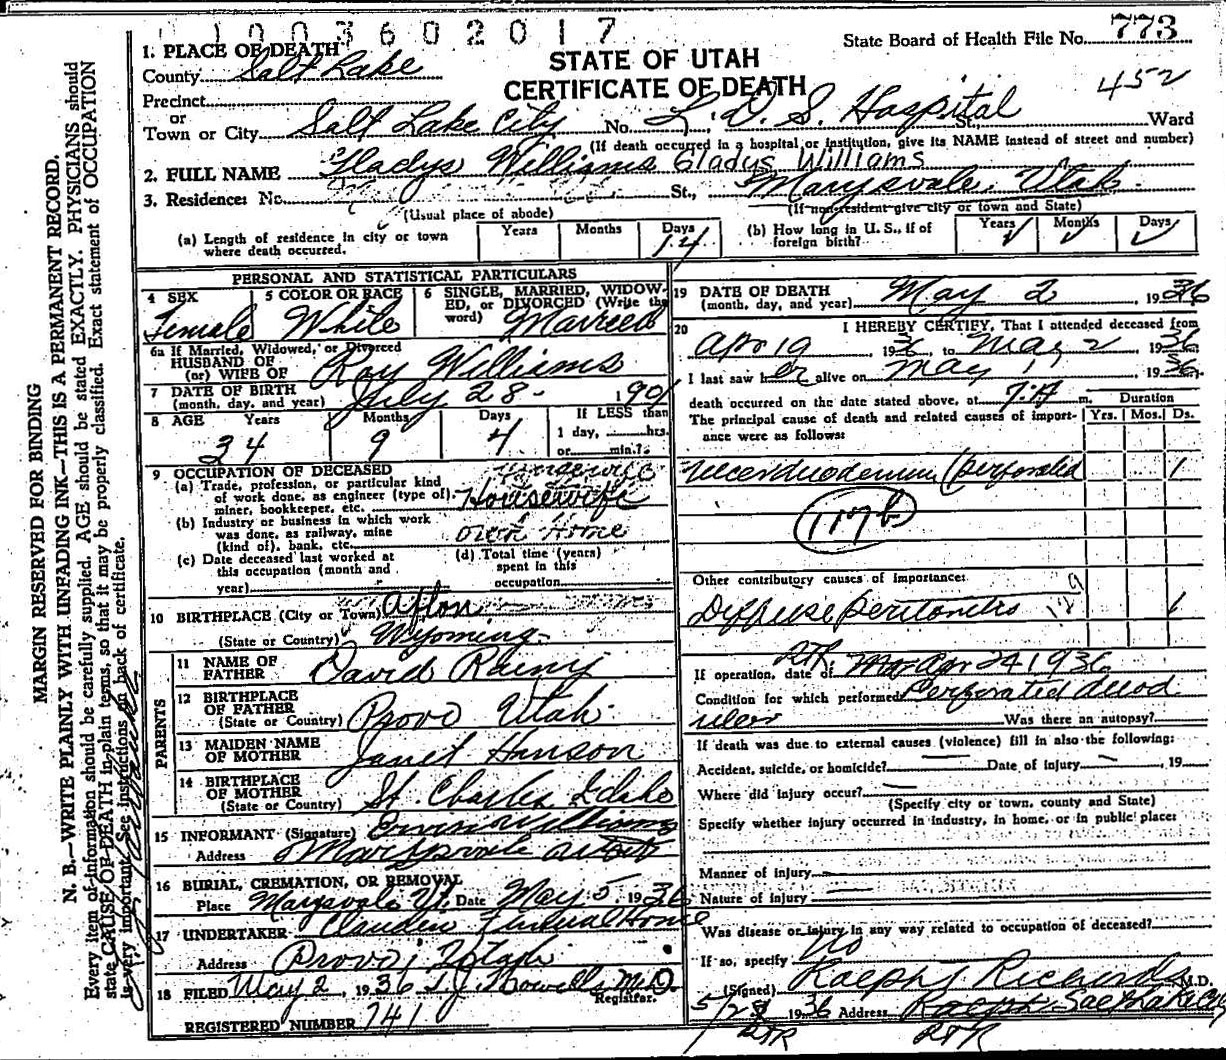 1003602017
State Board of Health File No. 773
1. PLACE OF DEATH
STATE OF UTAH
County Salt Lake
CERTIFICATE OF DEATH
452
Precinct
or
Town or City Salt Lake City No. L. D. S. Hospital St., Ward
(If death occurred in a hospital or institution, give its NAME instead of street and number)
2. FULL NAME Gladys Williams Gladys Williams
3. Residence: No. St., Marysvale, Utah.
(Usual place of abode) (If non-resident give city or town and State)
(a) Length of residence in city or town where death occurred. Years Months Days 14
(b) How long in U. S., if of foreign birth? Years ✓ Months ✓ Days ✓
PERSONAL AND STATISTICAL PARTICULARS
4 SEX Female
5 COLOR OR RACE White
6 SINGLE, MARRIED, WIDOWED, or DIVORCED (Write the word) Married
6a If Married, Widowed, or Divorced
HUSBAND OF
(or) WIFE OF Roy Williams
7 DATE OF BIRTH
(month, day, and year) July 28 - 1901
8 AGE Years 34 Months 9 Days 4 If LESS than 1 day, hrs. or min.?
9 OCCUPATION OF DECEASED
(a) Trade, profession, or particular kind of work done, as engineer (type of), miner, bookkeeper, etc. Housewife
(b) Industry or business in which work was done, as railway, mine (kind of), bank, etc. own Home
(c) Date deceased last worked at this occupation (month and year)
(d) Total time (years) spent in this occupation
10 BIRTHPLACE (City or Town) Afton
(State or Country) Wyoming
PARENTS
11 NAME OF FATHER David
12 BIRTHPLACE OF FATHER
(State or Country) Provo Utah
13 MAIDEN NAME OF MOTHER Janet Hanson
14 BIRTHPLACE OF MOTHER
(State or Country) St. Charles Idaho
15 INFORMANT (Signature) Williams
Address Marysvale Utah
16 BURIAL, CREMATION, OR REMOVAL
Place Marysvale Ut. Date May 5, 1936
17 UNDERTAKER Claudin Funeral Home
Address Provo, Utah
18 FILED May 2, 1936 T J Howells M.D.
Registrar.
REGISTERED NUMBER 741
19 DATE OF DEATH
(month, day, and year) May 2, 1936
20 I HEREBY CERTIFY, That I attended deceased from
Apr 19 1936 to May 2, 1936
I last saw her alive on May 1, 1936
death occurred on the date stated above, at 7:A m.
Duration
The principal cause of death and related causes of importance were as follows: Yrs. Mos. Ds.
Ulcer duodenum (perforated 1
117b
Other contributory causes of importance:
Diffuse peritonitis 129 1
If operation, date of Apr 24 1936
Condition for which performed Perforated duod
ulcer Was there an autopsy?
If death was due to external causes (violence) fill in also the following:
Accident, suicide, or homicide? Date of injury , 19
Where did injury occur?
(Specify city or town, county and State)
Specify whether injury occurred in industry, in home, or in public place:
Manner of injury
Nature of injury
Was disease or injury in any way related to occupation of deceased?
If so, specify No
(Signed) Ralph T Richards M.D.
5/2 1936 Address Salt Lake City
RTR RTR
MARGIN RESERVED FOR BINDING
N. B.—WRITE PLAINLY WITH UNFADING INK—THIS IS A PERMANENT RECORD.
Every item of information should be carefully supplied. AGE should be stated EXACTLY. PHYSICIANS should
state CAUSE OF DEATH in plain terms, so that it may be properly classified. Exact statement of OCCUPATION
is very important. See instructions on back of certificate.